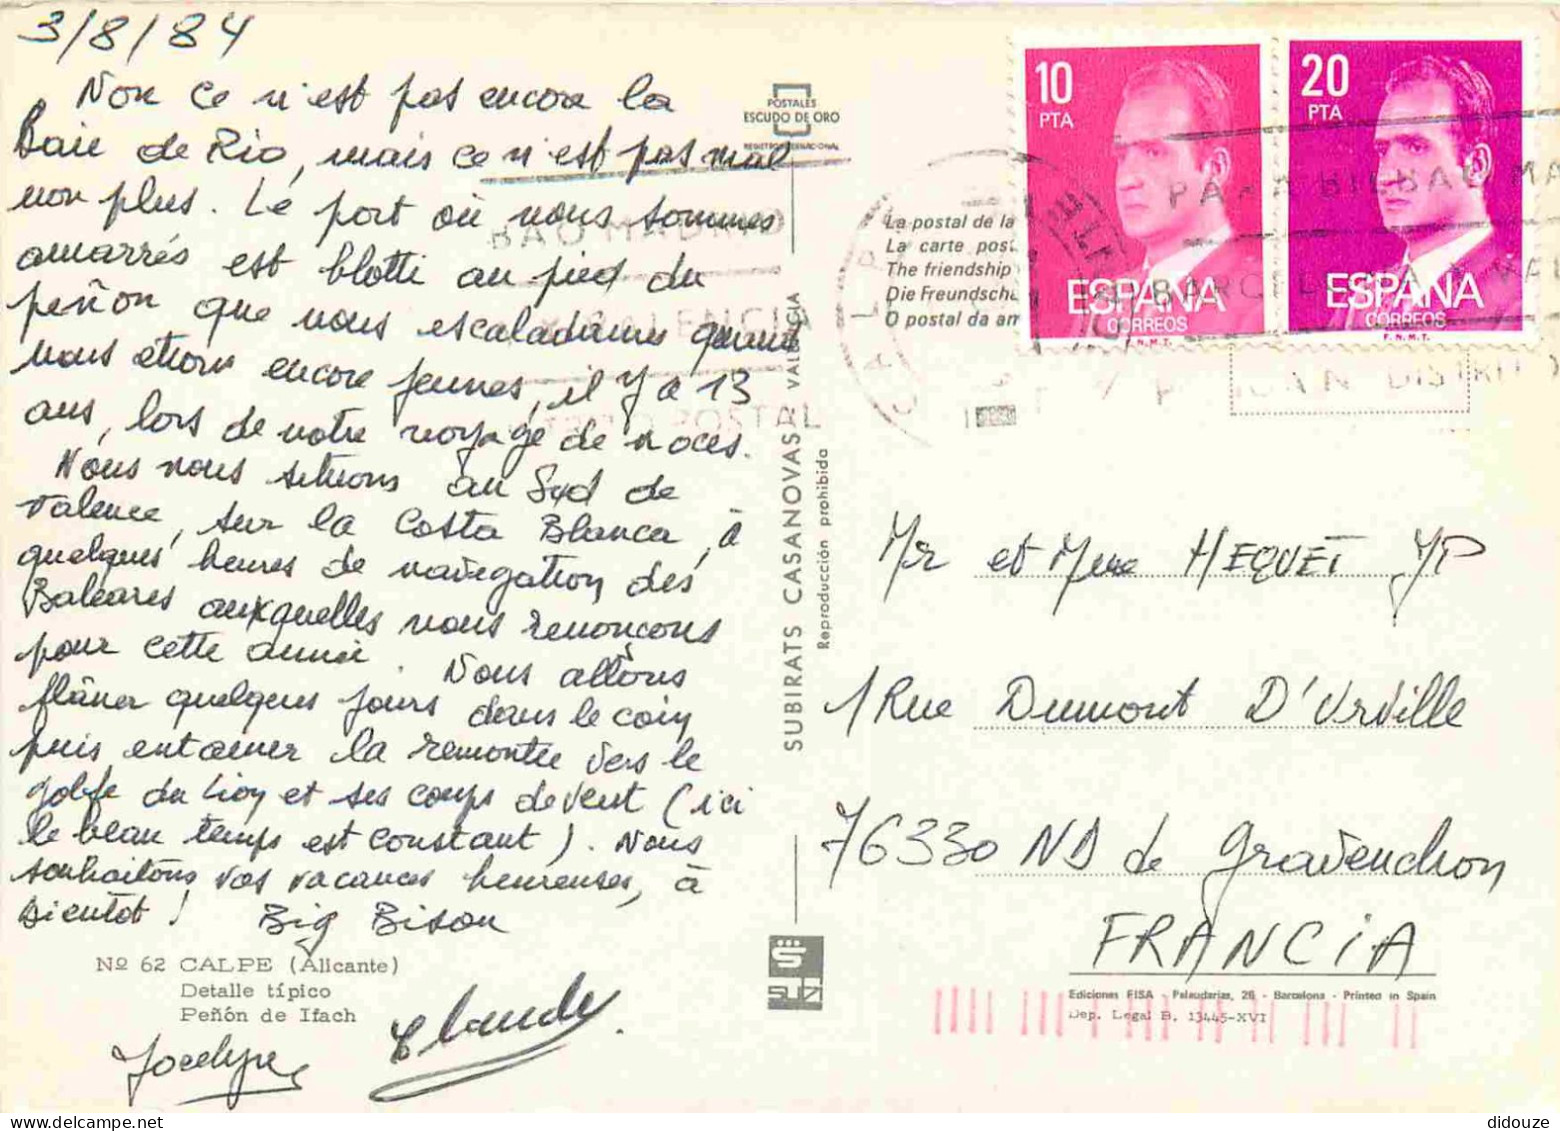 3/8/84
Non ce n'est pas encore la
Baie de Rio, mais ce n'est pas mal
non plus. Le port où nous sommes
amarrés est blotti au pied du
peñon que nous escaladames quand
nous étions encore jeunes, il y a 13
ans, lors de notre voyage de noces.
Nous nous situons au Sud de
Valence, sur la Costa Blanca, à
quelques heures de navigation des
Baléares auxquelles nous renonçons
pour cette année. Nous allons
flâner quelques jours dans le coin
puis entamer la remontée vers le
golfe du Lion et ses coups de vent (ici
le beau temps est constant). Nous
souhaitons vos vacances heureuses, à
bientôt! Big Bison
Nº 62 CALPE (Alicante)
Detalle típico
Peñón de Ifach
Jocelyne Claude
POSTALES
ESCUDO DE ORO
SUBIRATS CASANOVAS - VALENCIA
Reproducción prohibida
La postal de la
La carte post
The friendship
Die Freundscha
O postal da am
10
PTA
ESPAÑA
CORREOS
F.N.M.T.
20
PTA
ESPAÑA
CORREOS
F.N.M.T.
Mr et Mme HEQUET JP
1 Rue Dumont D'Urville
76330 ND de Gravenchon
FRANCIA
Ediciones FISA - Palaudarias, 26 - Barcelona - Printed in Spain
Dep. Legal B. 13445-XVI
didouze